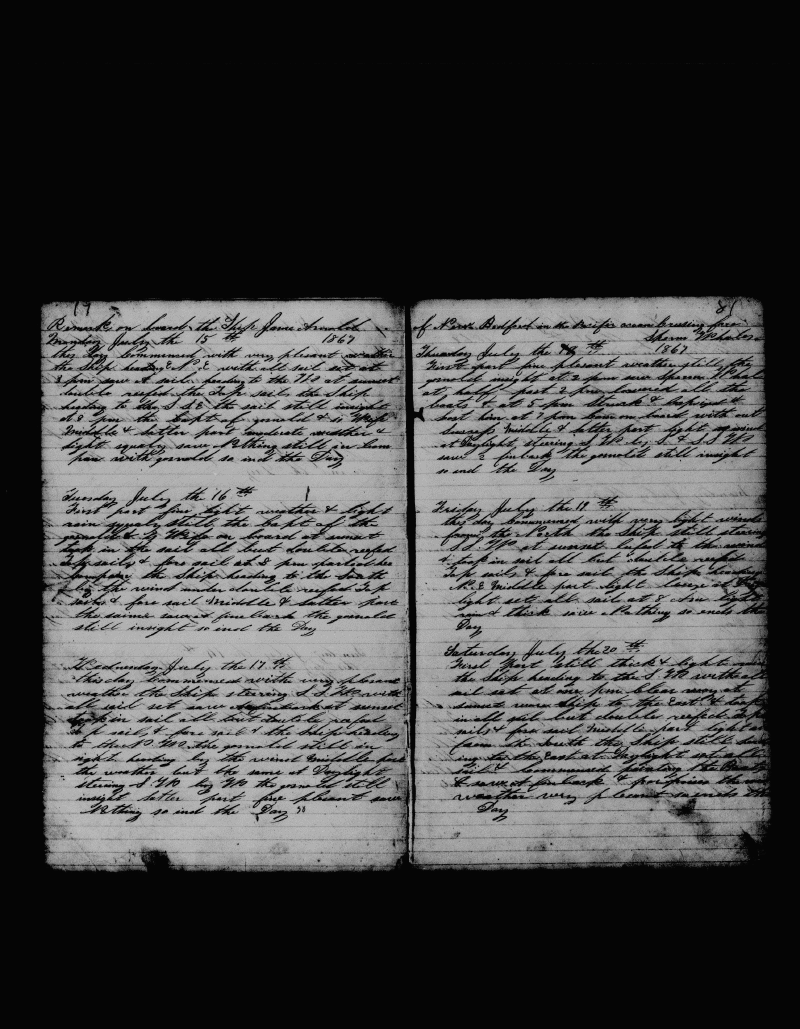 Remark on board the Ship James Arnold
Monday July the 15 th 1867
this Day Commenced with very plesent weather
the Ship heading N E with all sail set at
3 pm saw A sail heading to the at sunset
double reefed the Top sails the Ship
heading to the S & E the sail still insight
at 8 pm the Capt
Middle & latter part moderate weather &
light squaly saw Nothing still in Com
pan with gosnold so ind the Day
Tuesday July the 16 th
First part fine light weather & light
rain squaly still the Capt of the
gosnold & on board at sunset
took in the sail all but double reefed
Top sails & fore sail at 8 pm parted
company the Ship heading to the South
by the wind under double reefed Top
sails & fore sail Middle & latter part
the same saw A fineback the gosnold
still insight so ind the Day
Wednesday July the 17 th
this day Commenced with very plesent
weather the Ship steering S S W with
all sail set saw at sunset
took in sail all but double reefed
Top sails & fore sail & the Ship heading
to the N W the gosnold still in
sight heading by the wind Middle part
the weather but the same at Daylight
stering S W by W the gosnold still
insight latter part fine plesent saw
Nothing so ind the Day
81
of New Bedford in the Pacific ocean Crussing for
Sperm Whales
Thursday July the th 1867
First part fine plesent weather still the
gosnold insight at 2 pm saw sperm
at half past 2 pm lowered all the
boats & at 5 pm Struck &
at 7 pm Came on board with out
sucess Middle & latter part light squaly
at Daylight stering S W by S & S S W
saw 2 finback the gosnold still insight
so end the Day
Friday July the 19 th
this day Commenced with very light winds
from the North the Ship still stering
S S W at sunset lufed to the wind
& took in sail all but double reefed
Top sails & fore sail the Ship heading
N E Middle part light
light set all sail at 8 Am light
rain & thick saw Nothing so ends the
Day
Saturday July the 20 th
First Part still thick & light squaly
the Ship heading to the S W with all
sail set at one pm clear away at
sunset ware ship to the East & took
in all sail but double reefed Top
sails & fore sail Middle part light
from the South the Ship still
ing to the East at Daylight
sail & Commenced
& saw A finback & porpoises the
weather very plesent so ends the
Day